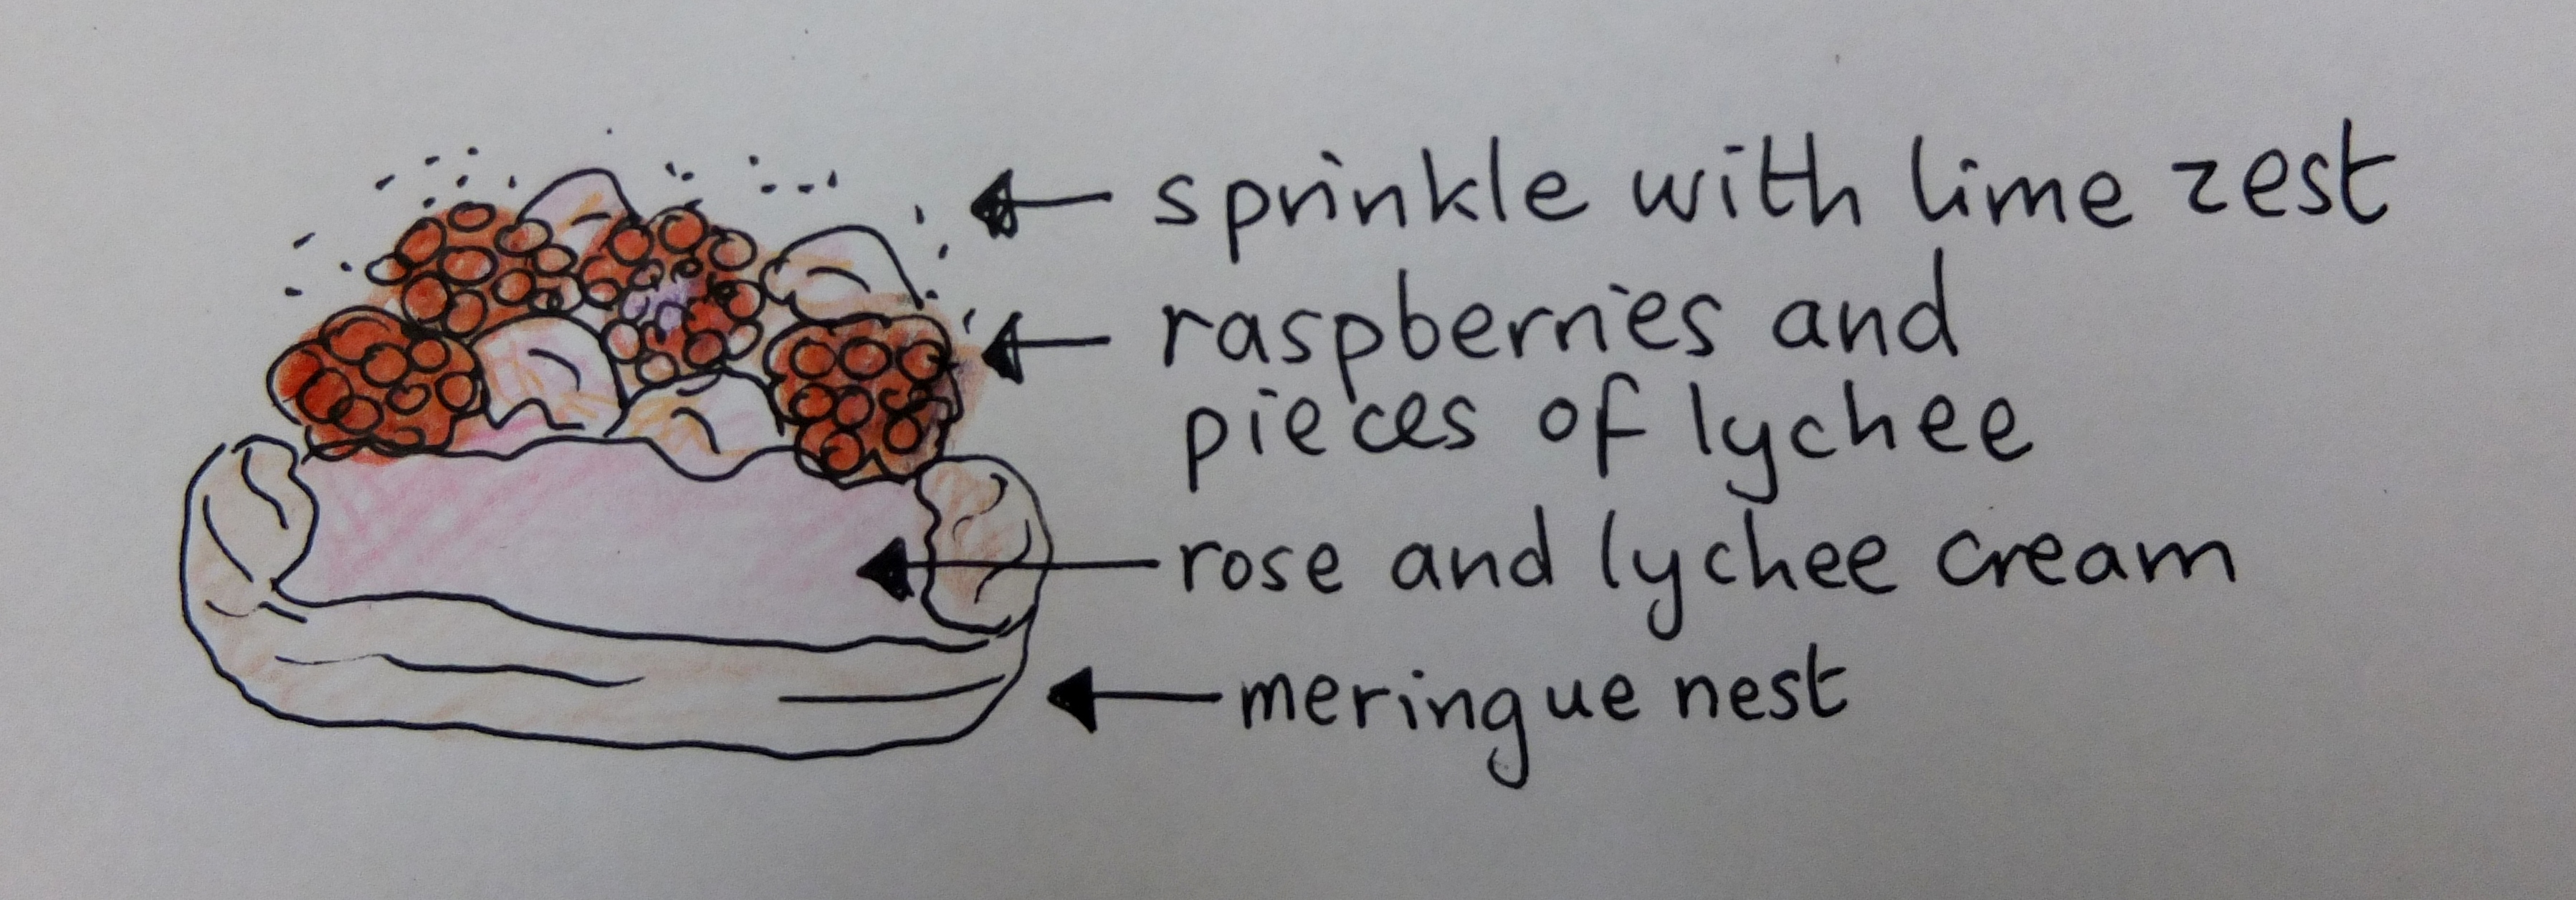 sprinkle with lime zest
raspberries and
pieces of lychee
rose and lychee cream
meringue nest